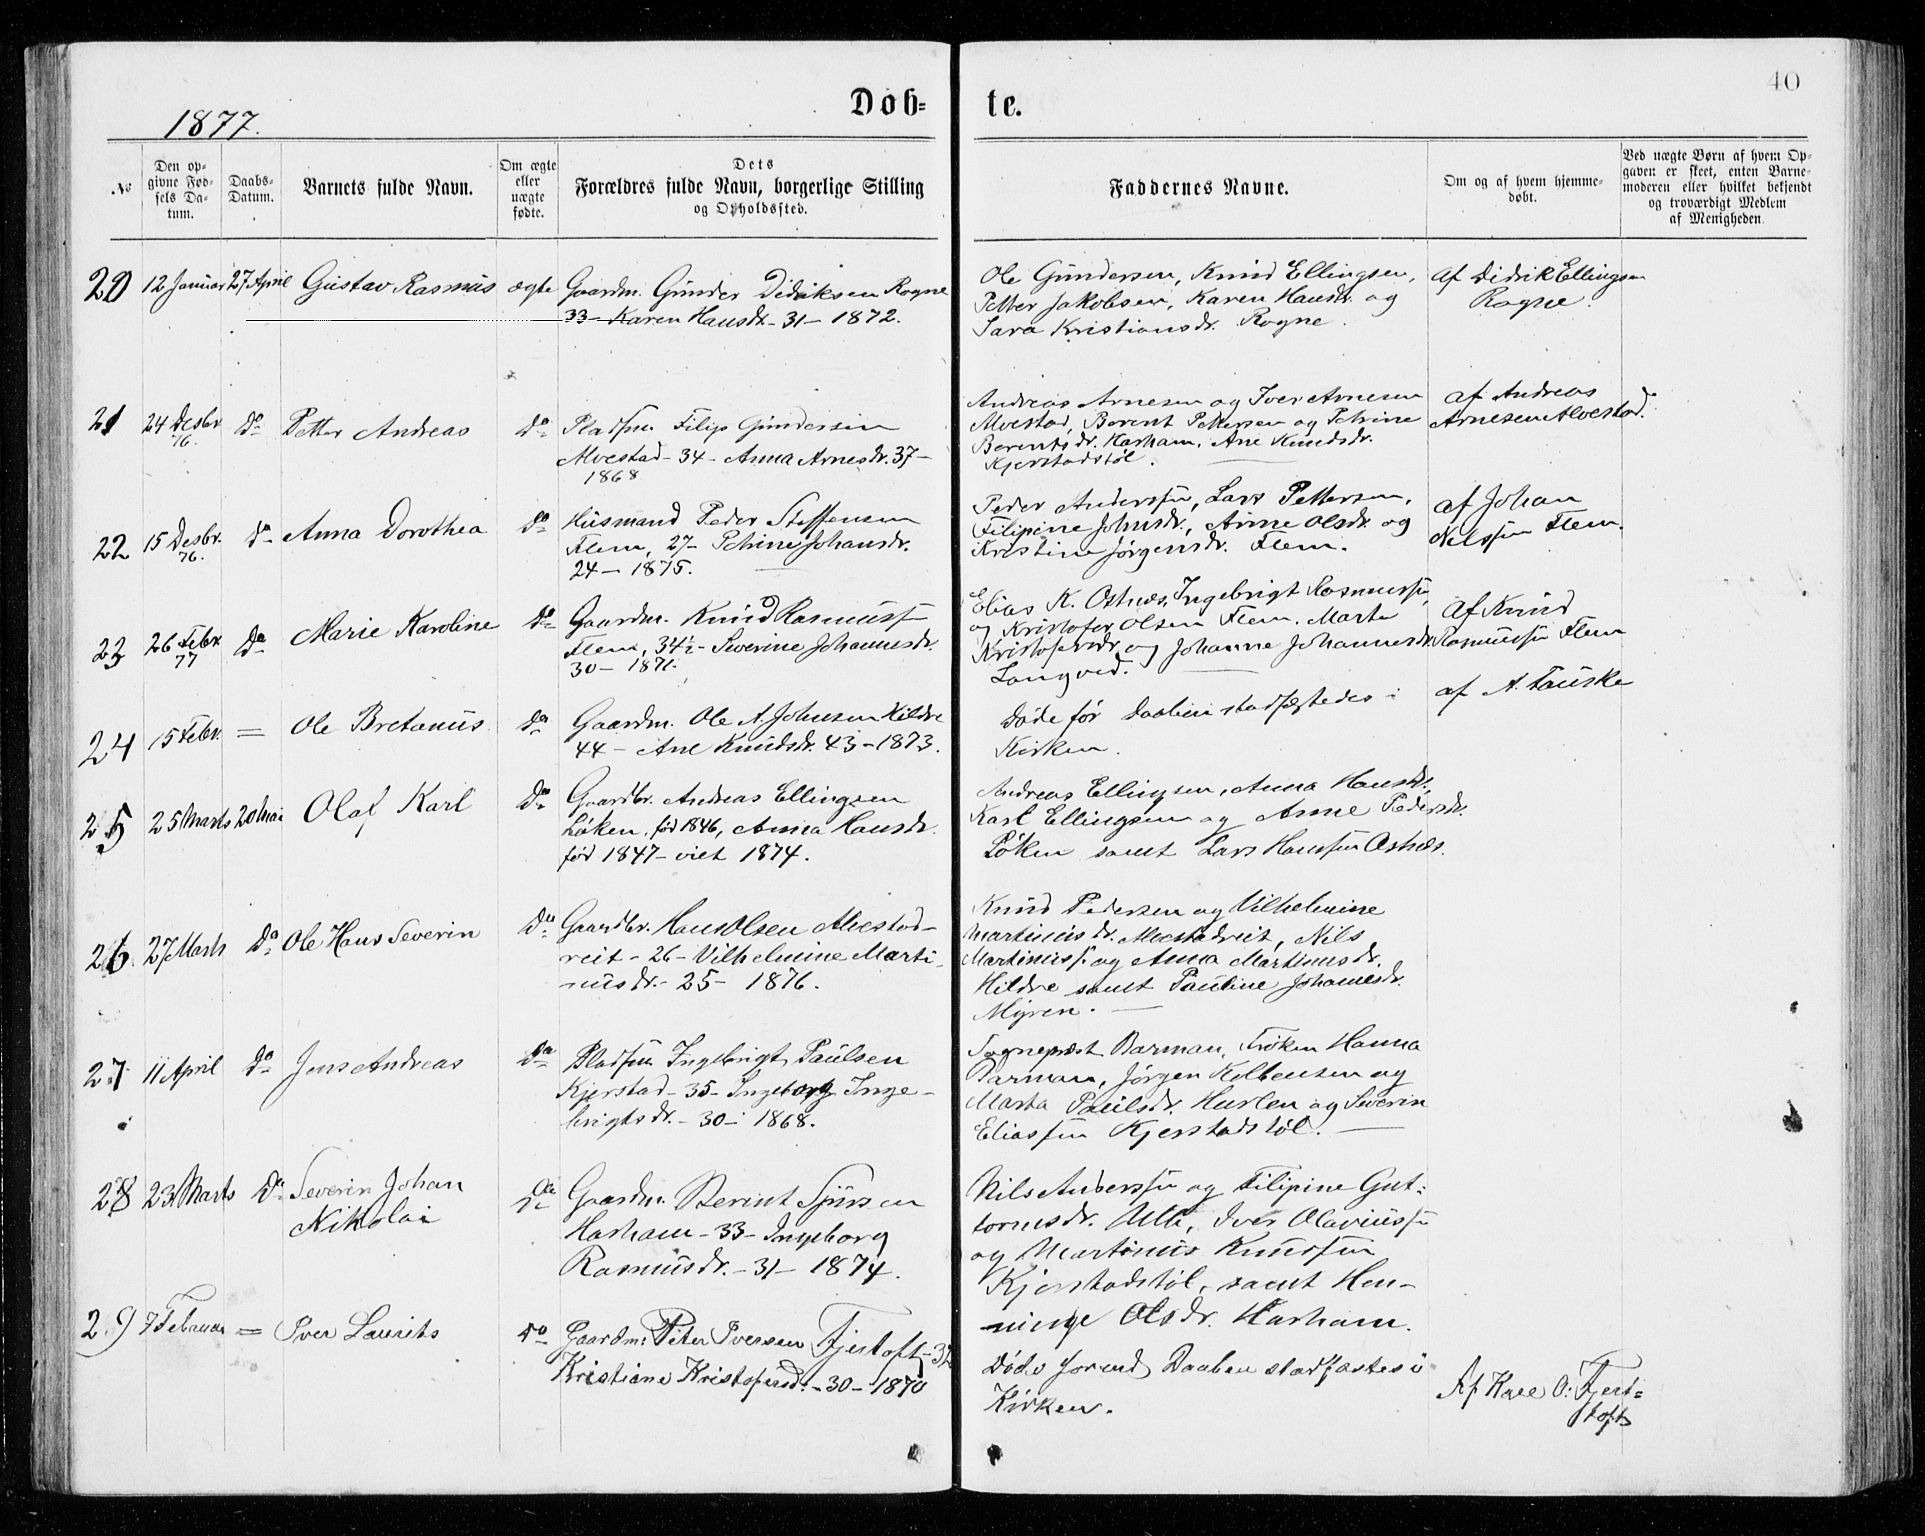 40
1877.
Døb-
te.
No
Den op-
givne Fød-
sels Da-
tum.
Daabs-
Datum.
Barnets fulde Navn.
Om ægte
eller
uægte
fødte.
Dets
Forældres fulde Navn, borgerlige Stilling
og Opholdssted.
Faddernes Navne.
Om og af hvem hjemme-
døbt.
Ved uægte Børn af hvem Op-
gaven er skeet, enten Barne-
moderen eller hvilket bekjendt
og troværdigt Medlem
af Menigheden.
20 12 Januar 27 April Gustav Rasmus ægte
Gaardm. Gunder Didriksen Rogne
33 - Karen Hansdr. - 31 - 1872.
Ole Gundersen, Knud Ellingsen,
Petter Jakobsen, Karen Hansdr. og
Sara Kristiansdr. Rogne.
af Didrik Ellingsen
Rogne.
21 24 Desbr. 76. Do Petter Andreas Do
Pladsm. Filip Gundersen
Alvestad - 34 - Anna Arnesdr. 37 -
1868
Andreas Arnesen og Iver Arnesen
Alvestad, Berent Pettersen og Petrine
Berentsdr. Harham, Ane Knudsdr.
Kjerstadstøl.
af Andreas
Arnesen Alvestad.
22 15 Desbr. 76. Do Anna Dorothea Do
Husmand Peder Steffensen
Flem, 27 - Petrine Johansdr.
24 - 1875.
Peder Anderssen, Lars Pettersen,
Filipine Johnsdr., Anne Olsdr. og
Kristine Jørgensdr. Flem.
af Johan
Nilssen Flem.
23 26 Febr. 77 Do Marie Karoline Do
Gaardm. Knud Rasmussen
Flem, 34½ - Severine Johannesdr.
30 - 1871.
Elias K. Østnes, Ingebrigt Rasmussen,
og Kristofer Olsen Flem. Marte
Kristofersdr. og Johanne Johannesdr.
Longved.
af Knud
Rasmussen Flem
24 15 Febr. = Ole Bretanus Do
Gaardm. Ole A. Johnsen Hildre
44 - Ane Knudsdr. 43 - 1873.
Døde før Daaben stadfæstedes i
Kirken.
af A. Tauske
25 25 Marts 20 Mai Olaf Karl Do
Gaardbr. Andreas Ellingsen
Løken, fød 1846, Anna Hansdr.
fød 1847 - viet 1874.
Andreas Ellingsen, Anna Hansdr.,
Karl Ellingsen og Anne Pedersdr.
Løken samt Lars Hanssen Østnes.
26 27 Marts Do Ole Hans Severin Do
Gaardbr. Hans Olsen Alvestad-
reit - 26 - Vilhelmine Marti-
nusdr. - 25 - 1876.
Knud Pedersen og Vilhelmine
Martinusdr. Alvestadreit, Nils
Martinuss. og Anna Martinusdr.
Hildre samt Pauline Johannesdr.
Myren.
27 11 April Do Jens Andreas Do
Pladsm. Ingebrigt Paulsen
Kjerstad - 35 - Ingeborg Inge-
brigtsdr. - 30 - 1868.
Sognepræst Barman, Frøken Hanna
Barman, Jørgen Kolbensen og
Marta Paulsdr. Hurlen og Severin
Eliassen Kjerstadstøl.
28 23 Marts Do Severin Johan
Nikolai
Do
Gaardm. Berint Sjursen
Harham - 33 - Ingeborg
Rasmusdr. - 31 - 1874.
Nils Anderssen og Filipine Gut-
tormsdr. Ulla, Iver Olavussen
og Martinus Knudsen
Kjerstadstøl, samt Hen-
ninge Olsdr. Harham.
29 7 Februar = Iver Laurits Do
Gaardm: Peter Iversen Fjertoft - 32
Kristiane Kristofersd. - 30 - 1870
Døde forend Daaben stadfæstes i
Kirken.
Af Knee O: Fjert-
toft